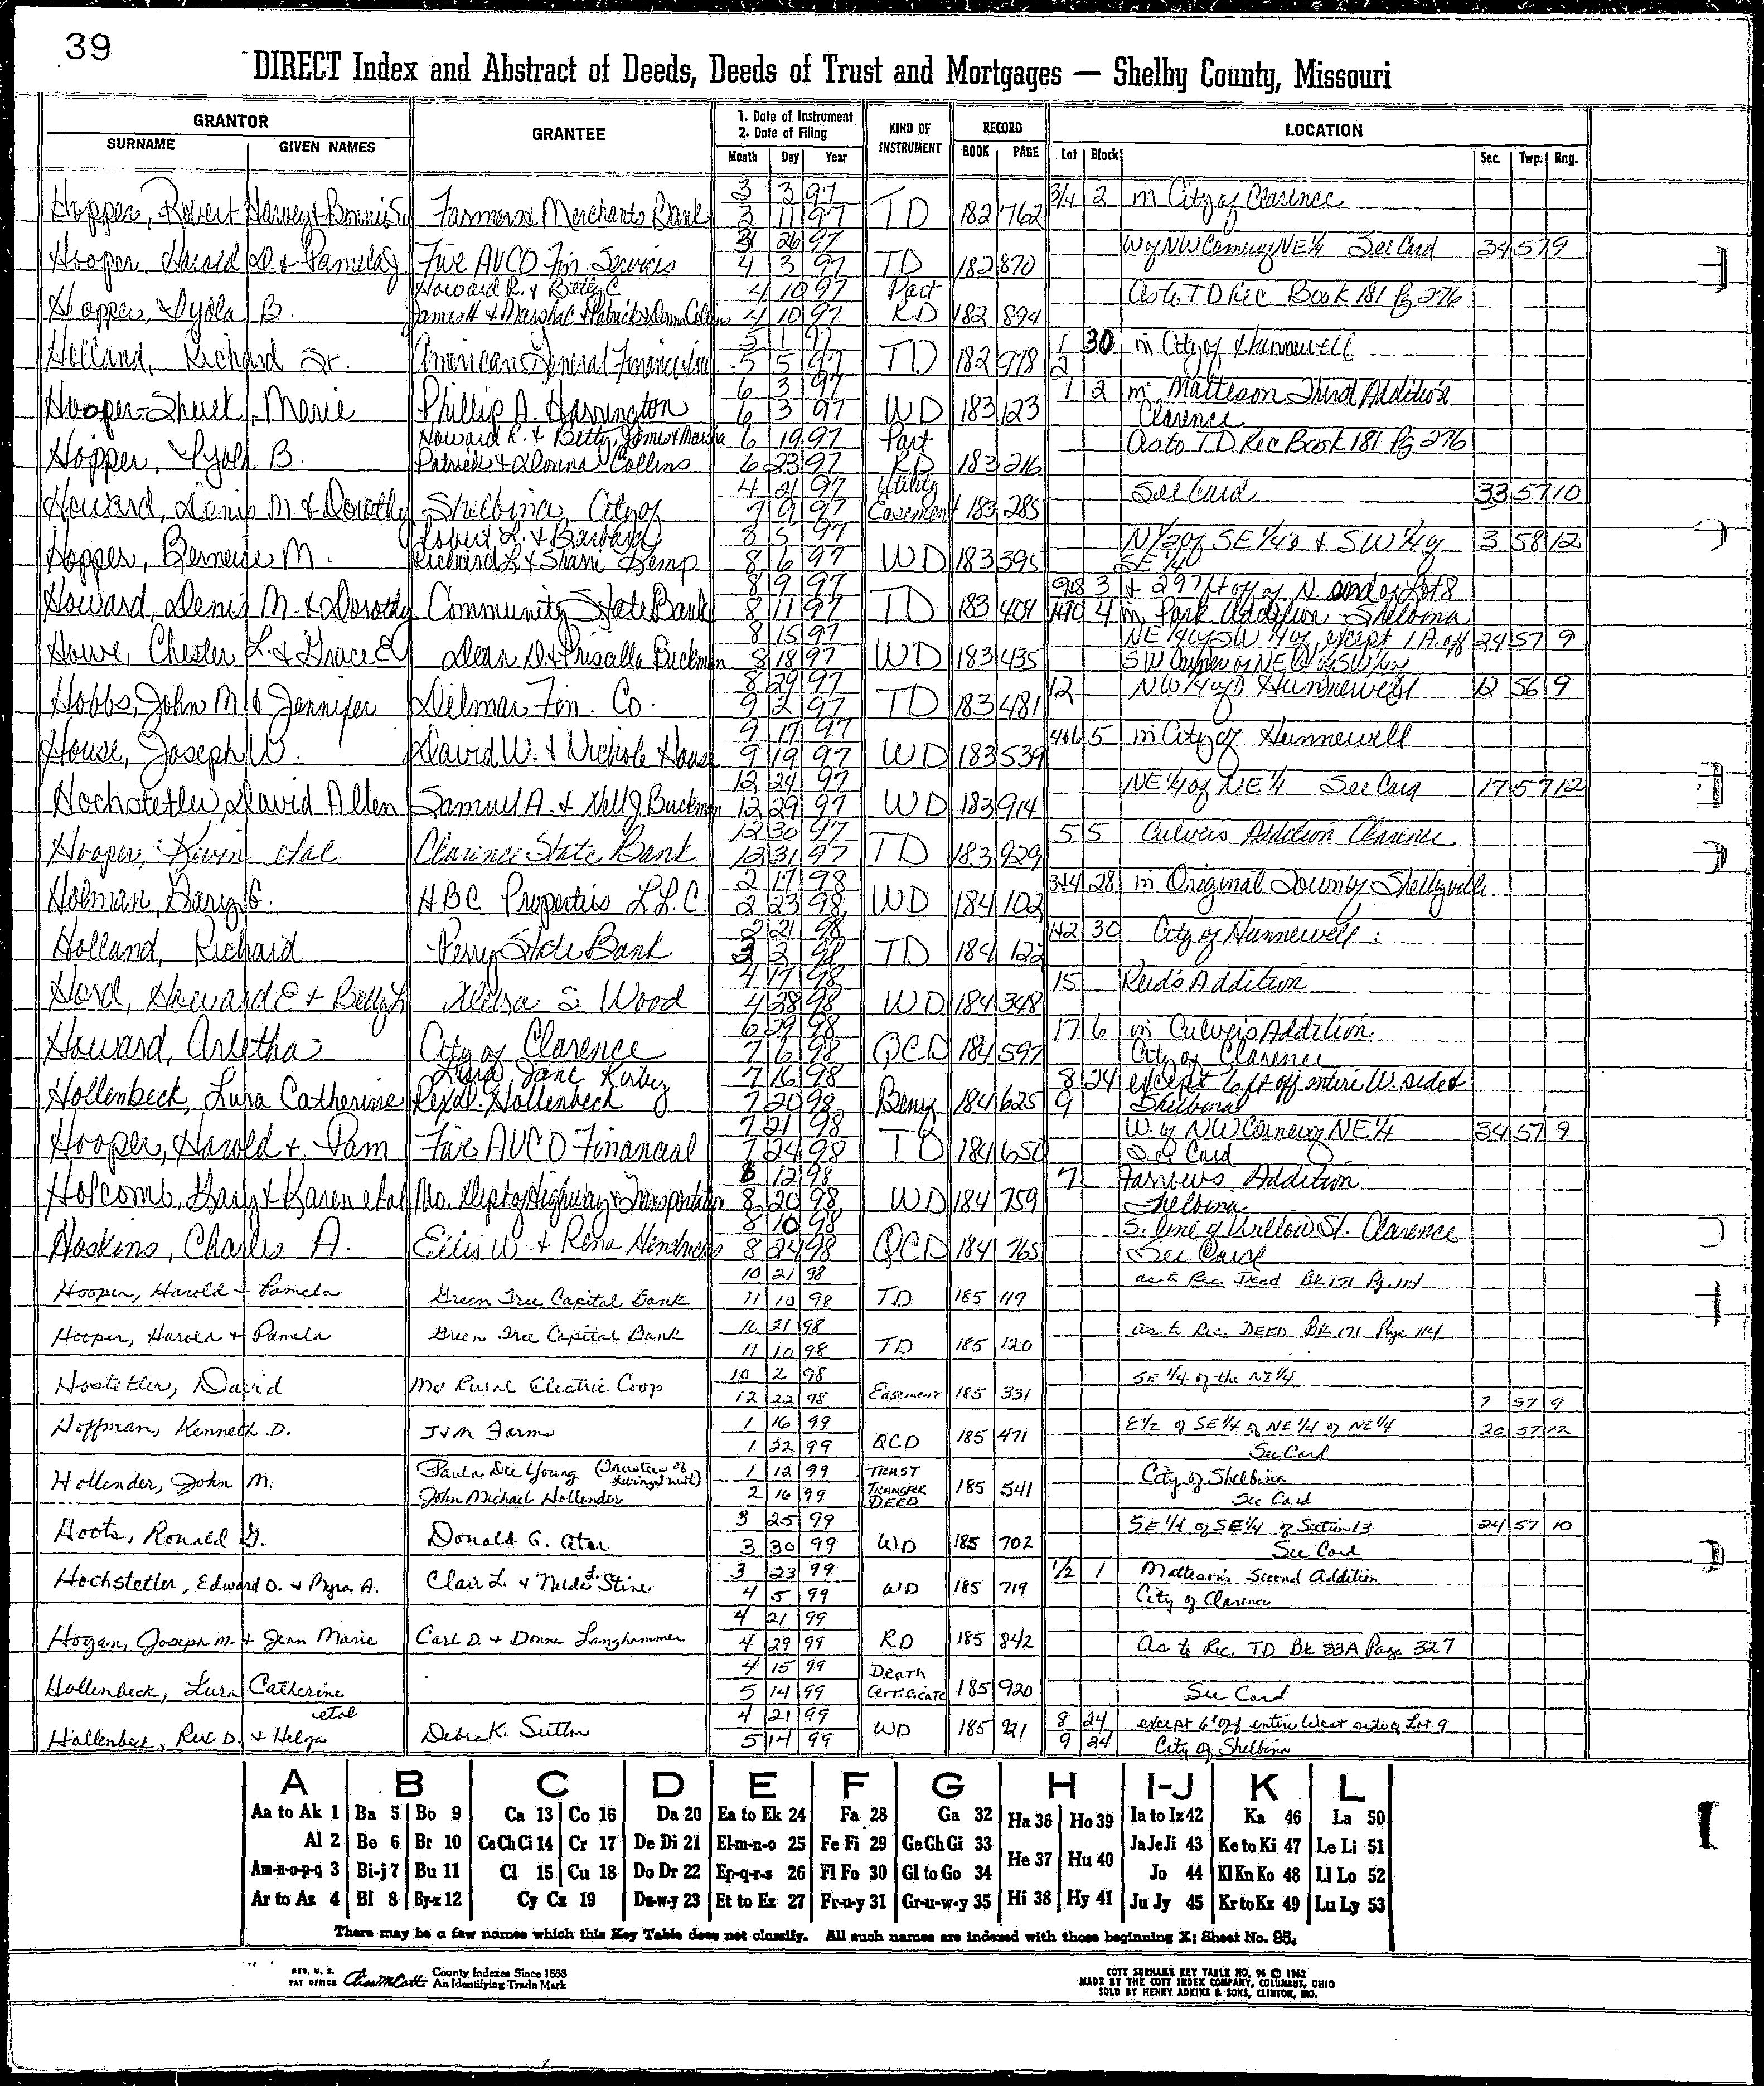 39
DIRECT Index and Abstract of Deeds, Deeds of Trust and Mortgages — Shelby County, Missouri
GRANTOR GRANTEE 1. Date of Instrument 2. Date of Filing KIND OF INSTRUMENT RECORD LOCATION
SURNAME GIVEN NAMES Month Day Year BOOK PAGE Lot Block Sec. Twp. Rng.
3 3 97 3/4 2 in City of Clarence
Hopper, Robert Harvey & Bonnie Farmers & Merchants Bank 3 11 97 TD 182 762
26 97 W of NW Corner of NE 1/4 See Card 34 57 9
Hooper, Harold D & Pamela J Five AVCO Fin. Services 4 3 97 TD 182 870
Howard R. & Betty C 4 10 97 Part As to TD Rec Book 181 Pg 276
Hopper, Lyola B. James H & Marsha C & Patrick & Donna Collins 4 10 97 RD 182 894
5 1 97 1 30 in City of Hunnewell
Holland, Richard Sr. American General Finance 5 5 97 TD 182 978 2
6 3 97 1 2 in Matteson Third Addition
Hooper-Shuck, Marie Phillip A. Harrington 6 3 97 WD 183 123 Clarence
Howard R. & Betty, James & Marsha 6 19 97 Part As to TD Rec Book 181 Pg 276
Hopper, Lyola B. Patrick & Donna Collins 6 23 97 RD 183 216
4 21 97 Utility See Card 33 57 10
Howard, Denis M & Dorothy Shelbina, City of 7 9 97 Easement 183 285
Robert L. & Barbara 8 5 97 N 1/2 of SE 1/4 & SW 1/4 of 3 58 12
Hopper, Berneice M. Richard L & Shani Kemp 8 6 97 WD 183 395 SE 1/4
8 9 97 9&8 3 & 297 ft off of N end of Lot 8
Howard, Denis M. & Dorothy Community State Bank 8 11 97 TD 183 404 4 in Park Addition Shelbina
8 15 97 NE 1/4 of SW 1/4 of, except 1 A. off 24 57 9
Howe, Chester L. & Grace E Dean D & Prisalla Buckman 8 18 97 WD 183 435 SW Corner of NE 1/4 of SW 1/4
8 29 97 12 NW 1/4 of Hunnewell 12 56 9
Hobbs, John M & Jennifer Delmar Fin. Co. 9 2 97 TD 183 481
9 17 97 4&6 5 in City of Hunnewell
House, Joseph W. David W. & Nichole House 9 19 97 WD 183 539
12 24 97 NE 1/4 of NE 1/4 See Card 17 57 12
Hochstetler, David Allen Samuel A. & Kelly J Buckman 12 29 97 WD 183 914
12 30 97 5 5 Culvers Addition Clarence
Hooper, Kevin etal Clarence State Bank 12 31 97 TD 183 929
2 17 98 3&4 28 in Original Town of Shelbyville
Holman, Gary G. HBC Properties L.L.C. 2 23 98 WD 184 102
2 21 98 1&2 30 City of Hunnewell
Holland, Richard Perry State Bank 3 2 98 TD 184 122
4 17 98 15 Reid's Addition
Hord, Howard E & Betty L S Wood 4 28 98 WD 184 348
6 29 98 17 6 in Culver's Addition
Howard, Arletha City of Clarence 7 6 98 QCD 184 597 City of Clarence
Lura Jane Kirby 7 16 98 8 24 except 6 ft off entire W. side of
Hollenbeck, Lura Catherine Rex D. Hollenbeck 7 20 98 Beny 184 625 9 Shelbina
7 21 98 W. of NW Corner of NE 1/4 34 57 9
Hooper, Harold & Pam Five AVCO Financial 7 24 98 TD 184 650 See Card
8 12 98 7 Farrows Addition
Holcomb, Gary & Karen etal Mo. Dept of Highway & Transportation 8 20 98 WD 184 759 Shelbina
8 10 98 S. line of Willow St. Clarence
Hoskins, Charles A. Ellis W. & Rena Hendricks 8 24 98 QCD 184 765 See Card
10 21 98 as to Rec. Deed Bk 171 Pg 114
Hooper, Harold & Pamela Green Tree Capital Bank 11 10 98 TD 185 119
10 21 98 as to Rec. DEED Bk 171 Page 114
Hooper, Harold & Pamela Green Tree Capital Bank 11 10 98 TD 185 120
10 2 98 SE 1/4 of the NE 1/4
Hostetler, David Mo Rural Electric Coop 12 22 98 Easement 185 331 7 57 9
1 16 99 E 1/2 of SE 1/4 of NE 1/4 of NE 1/4 20 57 12
Hoffman, Kenneth D. J&M Farms 1 22 99 QCD 185 471 See Card
Paula Dee Young (Trustee of Living Trust) 1 12 99 TRUST City of Shelbina
Hollender, John M. John Michael Hollender 2 16 99 TRANSFER DEED 185 541 See Card
3 25 99 SE 1/4 of SE 1/4 of Section 13 24 57 10
Hoots, Ronald G. Donald G. Ator 3 30 99 WD 185 702 See Card
3 23 99 1/2 1 Matteson's Second Addition
Hochstetler, Edward D. & Myra A. Clair L. & Nelda L. Stine 4 5 99 WD 185 719 City of Clarence
4 21 99
Hogan, Joseph M. & Jean Marie Carl D. & Donna Langhammer 4 29 99 RD 185 842 As to Rec. TD Bk 33A Page 327
4 15 99 Death
Hollenbeck, Lura Catherine 5 14 99 Certificate 185 920 See Card
etal 4 21 99 8 24 except 6' off entire West side of Lot 9
Hollenbeck, Rex D. & Helga Debra K. Sutton 5 14 99 WD 185 921 9 24 City of Shelbina
A B C D E F G H I-J K L
Aa to Ak 1 Ba 5 Bo 9 Ca 13 Co 16 Da 20 Ea to Ek 24 Fa 28 Ga 32 Ha 36 Ho 39 Ia to Iz 42 Ka 46 La 50
Al 2 Be 6 Br 10 Ce Ch Ci 14 Cr 17 De Di 21 El-m-n-o 25 Fe Fi 29 Ge Gh Gi 33 He 37 Hu 40 Ja Je Ji 43 Ke to Ki 47 Le Li 51
Am-n-o-p-q 3 Bi-j 7 Bu 11 Cl 15 Cu 18 Do Dr 22 Ep-q-r-s 26 Fl Fo 30 Gl to Go 34 Jo 44 Kl Kn Ko 48 Ll Lo 52
Ar to Az 4 Bl 8 By-z 12 Cy Cz 19 Du-w-y 23 Et to Ez 27 Fr-u-y 31 Gr-u-w-y 35 Hi 38 Hy 41 Ju Jy 45 Kr to Kz 49 Lu Ly 53
There may be a few names which this Key Table does not classify. All such names are indexed with those beginning X; Sheet No. 95.
REG. U. S. PAT OFFICE County Indexes Since 1888 An Identifying Trade Mark
COTT SURNAME KEY TABLE NO. 96 © 1962
MADE BY THE COTT INDEX COMPANY, COLUMBUS, OHIO
SOLD BY HENRY ADKINS & SONS, CLINTON, MO.